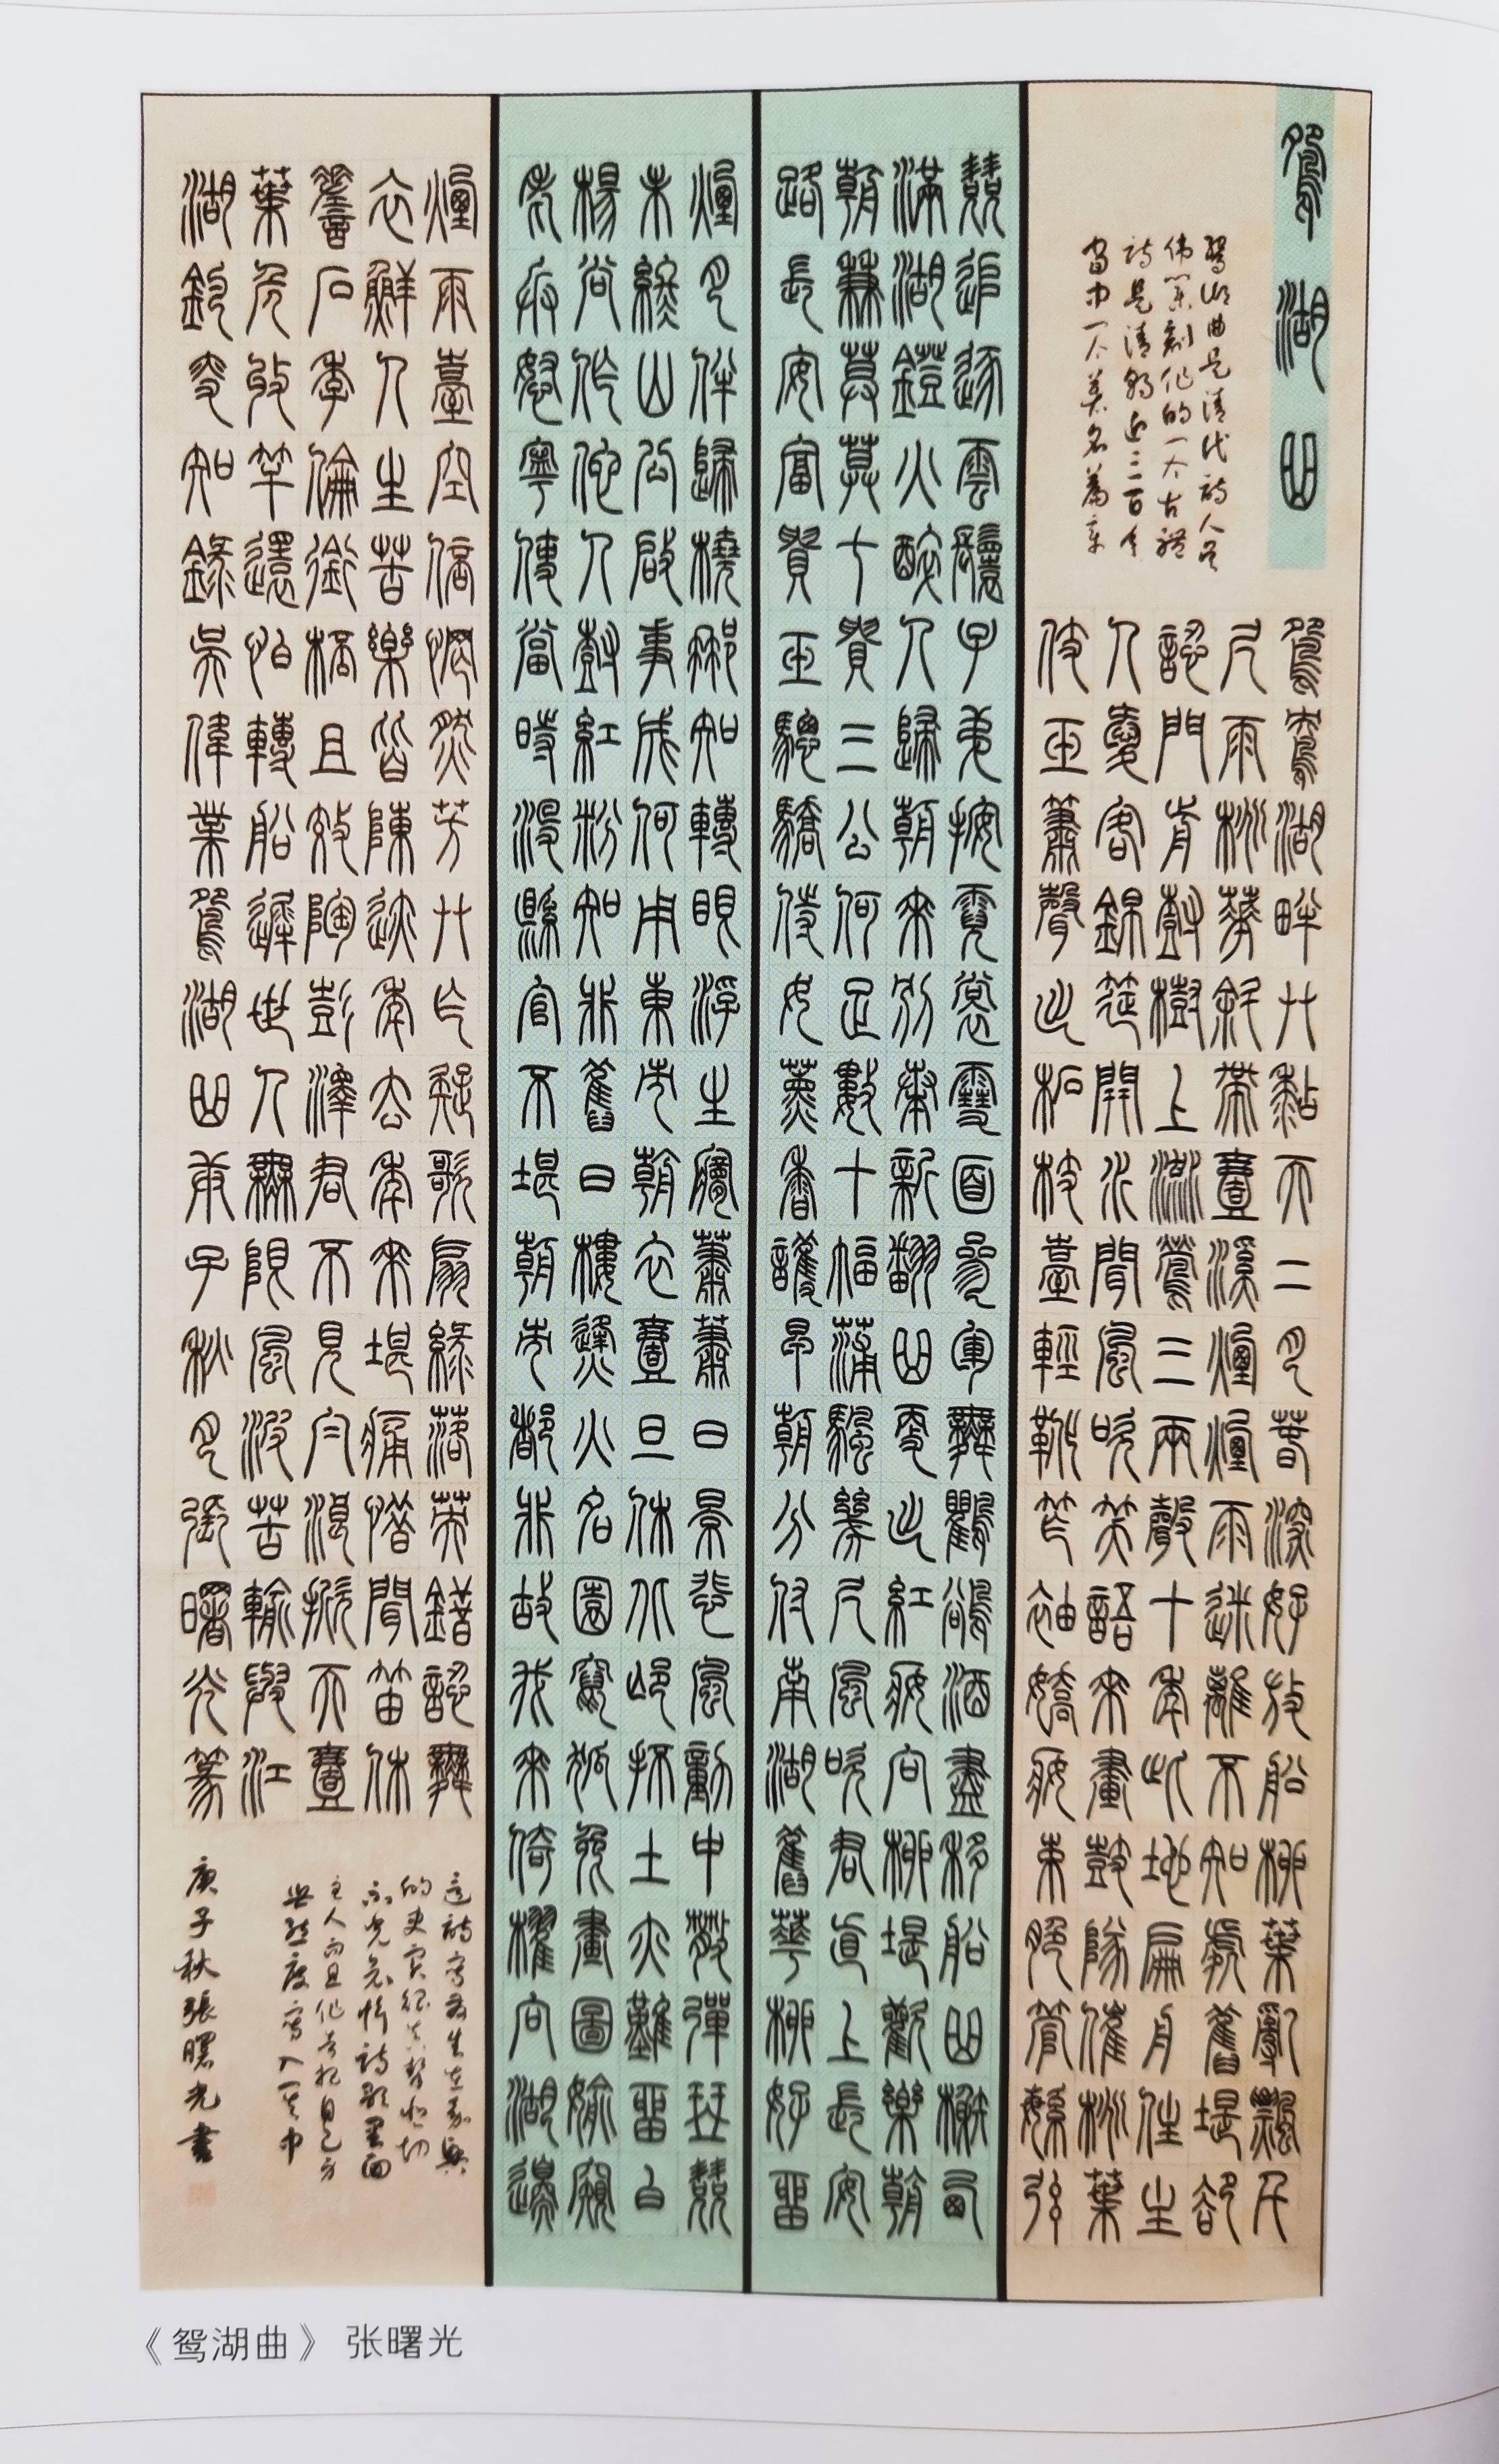 鴛湖曲
鴛湖曲是清代詩人吳
鴛鴦湖畔草黏天二月春深好放船柳葉亂飄千
尺雨桃花斜帶一溪煙煙雨迷離不知處舊堤卻
認門前樹樹上流鶯三兩聲十年此地扁舟住主
人愛客錦筵開水閣風吹笑語來畫鼓隊催桃葉
伎玉簫聲出柘枝臺輕靴窄袖嬌妝束脆管繁弦
競追逐雲鬟子弟按霓裳雪面參軍舞鸜鵒酒盡移船曲榭西
滿湖鐙火醉人歸朝來別奏新翻曲更出紅妝向柳堤歡樂朝
朝兼暮暮七貴三公何足數十幅蒲帆幾尺風吹君直上長安
路長安富貴玉驄驕侍女薰香護早朝分付南湖舊華柳好留
煙月伴歸橈那知轉眼浮生夢蕭蕭日景悲風動中散彈琴競
未終山公啟事成何用東市朝衣一旦休北邙抔土亦難留白
楊尚作他人樹紅粉知非舊日樓烽火名園竄狐兔畫圖偷窺
老兵怒寧使當時沒縣官不堪朝市都非故我來倚櫂向湖邊
煙雨臺空倍惘然芳草乍疑歌扇綠落英錯認舞
衣鮮人生苦樂皆陳跡年去年來堪痛惜聞笛休
嗟石季倫銜杯且效陶彭澤君不見白浪掀天一
葉危收竿還怕轉船遲世人無限風波苦輸與江
湖釣叟知錄吳偉業鴛湖曲庚子秋月張曙光篆
庚子秋張曙光書
《鸳湖曲》 张曙光